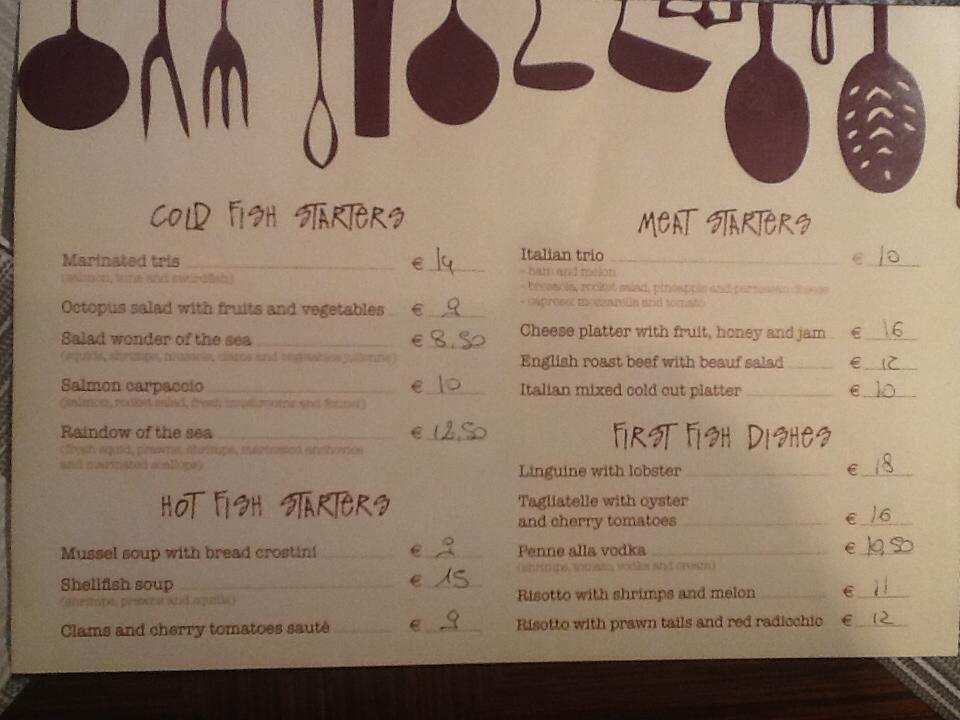 COLD FISH STARTERS
Marinated tris € 14
(salmon, tuna and swordfish)
Octopus salad with fruits and vegetables € 9
Salad wonder of the sea € 8,50
(squids, shrimps, mussels, clams and vegetables julienne)
Salmon carpaccio € 10
(salmon, rocket salad, fresh mushrooms and fennel)
Raindow of the sea € 12,50
(fresh squid, prawns, shrimps, marinated anchovies
and marinated scallops)
HOT FISH STARTERS
Mussel soup with bread crostini € 9
Shellfish soup € 15
(shrimps, prawns and squills)
Clams and cherry tomatoes sautè € 9
MEAT STARTERS
Italian trio € 10
- ham and melon
- bresaola, rocket salad, pineapple and parmesan cheese
- caprese: mozzarella and tomato
Cheese platter with fruit, honey and jam € 16
English roast beef with beauf salad € 12
Italian mixed cold cut platter € 10
FIRST FISH DISHES
Linguine with lobster € 18
Tagliatelle with oyster
and cherry tomatoes € 16
Penne alla vodka € 10,50
(shrimps, tomato, vodka and cream)
Risotto with shrimps and melon € 11
Risotto with prawn tails and red radicchio € 12